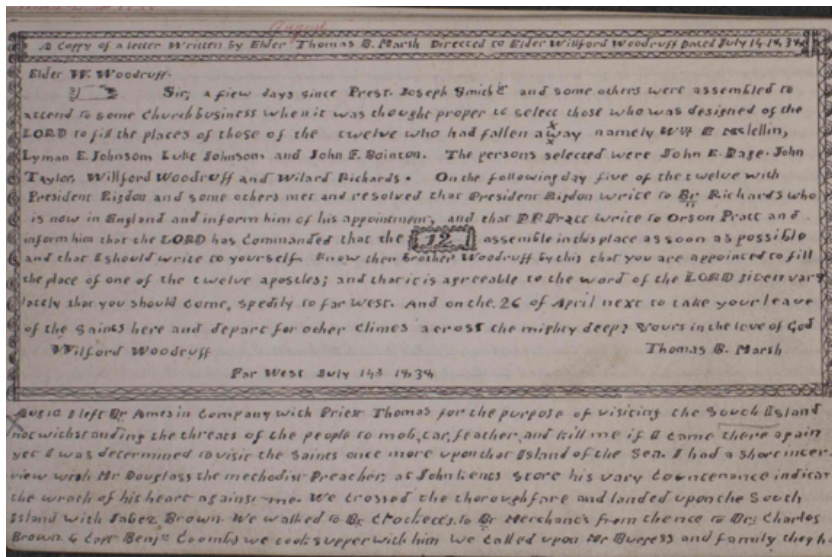 August
A Copy of a letter Written by Elder Thomas B. Marsh Directed to Elder Willford Woodruff Dated July 14, 1838
Elder W. Woodruff.
Sir, a fiew days since Prest. Joseph Smith Jr and some others were assembled to
attend to some Church business when it was thought proper to select those who was designed of the
LORD to fill the places of those of the twelve who had fallen away namely Wm E McLellin,
Lyman E. Johnson, Luke Johnson, and John F. Bointon. The persons selected were John E. Page. John
Taylor, Willford Woodruff and Wilard Richards. On the following day five of the twelve with
President Rigdon and some others met and resolved that President Rigdon write to Br Richards who
is now in England and inform him of his appointment, and that P.P. Pratt write to Orson Pratt and
inform him that the LORD has Commanded that the 12 assemble in this place as soon as possible
and that I should write to yourself. Know then brother Woodruff by this that you are appointed to fill
the place of one of the twelve apostles; and that it is agreeable to the word of the LORD given vary
lately that you should Come, spedily to far West. And on the 26 of April next to take your leave
of the Saints here and depart for other Climes across the mighty deep? Yours in the love of God
Wilford Woodruff Thomas B. Marsh
Far West July 14th 1838
Aug 10 I left Br Ames in Company with Priest Thomas for the purpose of visiting the South Island
notwithstanding the threats of the people to mob, tar, feather, and kill me if I came there again
yet I was determined to visit the Saints once more upon that Island of the Sea. I had a short inter-
view with Mr Douglass the methodist Preacher, at John Kents Store his vary Countenance indicat
the wrath of his heart against me. We Crossed the thoroughfare and landed upon the South
Island with Jabez Brown. We walked to Br Crocketts, to Br Merchants from thence to Brs Charles
Brown & Capt Benjn Coombs we took supper with him We Called upon Mr Burgess and family they h